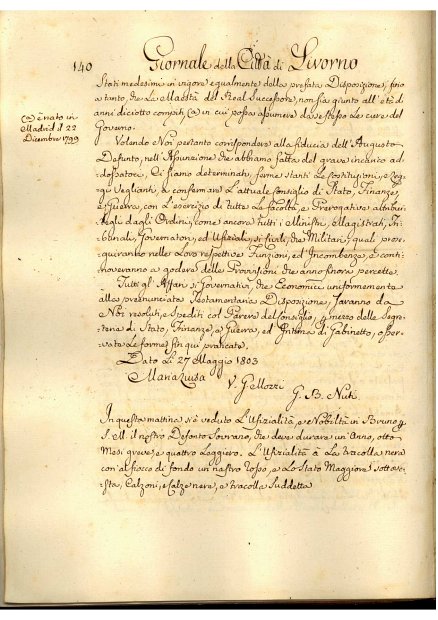 140
Giornale della Città di Livorno
(a) è nato in
Madrid il 22
Dicembre 1799
Stati medesimi in vigore egualmente della prefata Disposizione, fino
a tanto, che La Maestà del Real Successore, non sia giunto all'età di
anni diciotto compiti (a) in cui possa assumere da se stesso Le cure del
Governo.
Volendo Noi pertanto corrispondere alla fiducia dell'Augusto
Defunto, nell'Assunzione che abbiamo fatta del grave incarico ad-
dossatoci, Ci siamo determinati, ferme stanti Le Costituzioni, e Leg-
gi Veglianti, a confermare L'attuale Consiglio di Stato, Finanze,
e Guerra, con L'esercizio di tutte Le facoltà, e Prerogative attribui-
tegli dagli Ordini, come ancora tutti i Ministri, Magistrati, Tri-
bunali, Governatori, ed Ufiziali, si Civili, che Militari, quali prose-
guiranno nelle Loro respettive Funzioni, ed Incombenze, e conti-
noveranno a godere delle Provvisioni che anno finora percette.
Tutti gl'Affari si Governativi, che Economici uniformemente
alla prenunciata Testamentaria Disposizione, saranno da
Noi resoluti, e spediti col Parere del Consiglio, p. mezzo delle Segre-
terie di Stato, Finanze, e Guerra, ed Intima di Gabinetto, osser-
vate Le forme fin qui praticate.
Dato Li 27 Maggio 1803
Maria Luisa
V. Gellozzi
G. B. Nuti
In questa mattina s'è veduto L'Ufizialità, e Nobiltà in Bruno p.
S. M. il nostro Defonto Sovrano, che deve durare un'Anno, otto
Mesi greve, e quattro Leggiero. L'Ufizialità à La tracolla nera
con al fiocco di fondo un nastro rosso, e Lo Stato Maggiore sottove-
sta, Calzoni, e Calze nere, e tracolla suddetta